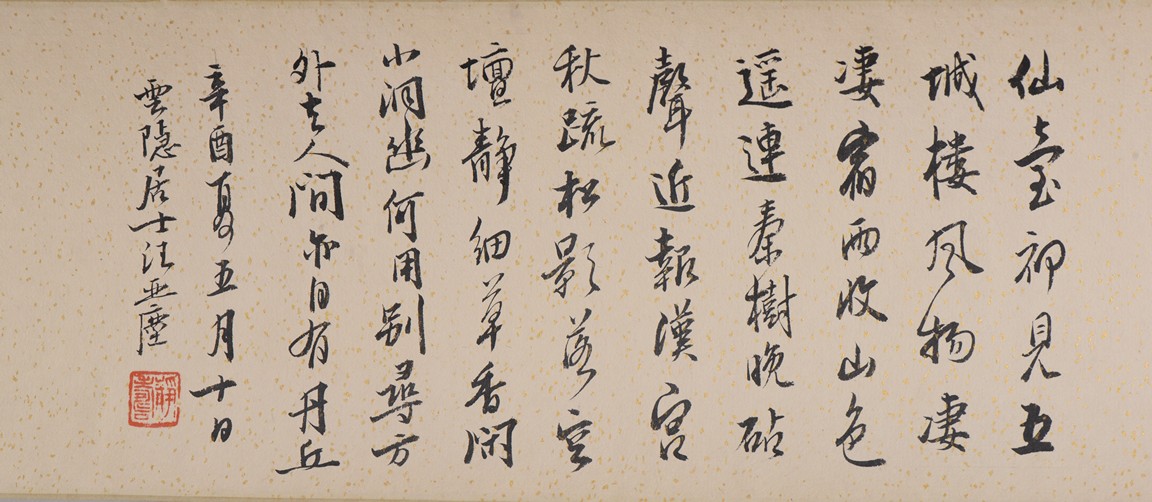 仙臺初見五
城樓風物凄
凄宿雨收山色
遙連秦樹晚砧
聲近報漢宮
秋疏松影落空
壇靜細草香閑
小洞幽何用別尋方
外去人間亦自有丹丘
辛酉夏五月十日
雲隱居士汪亞塵